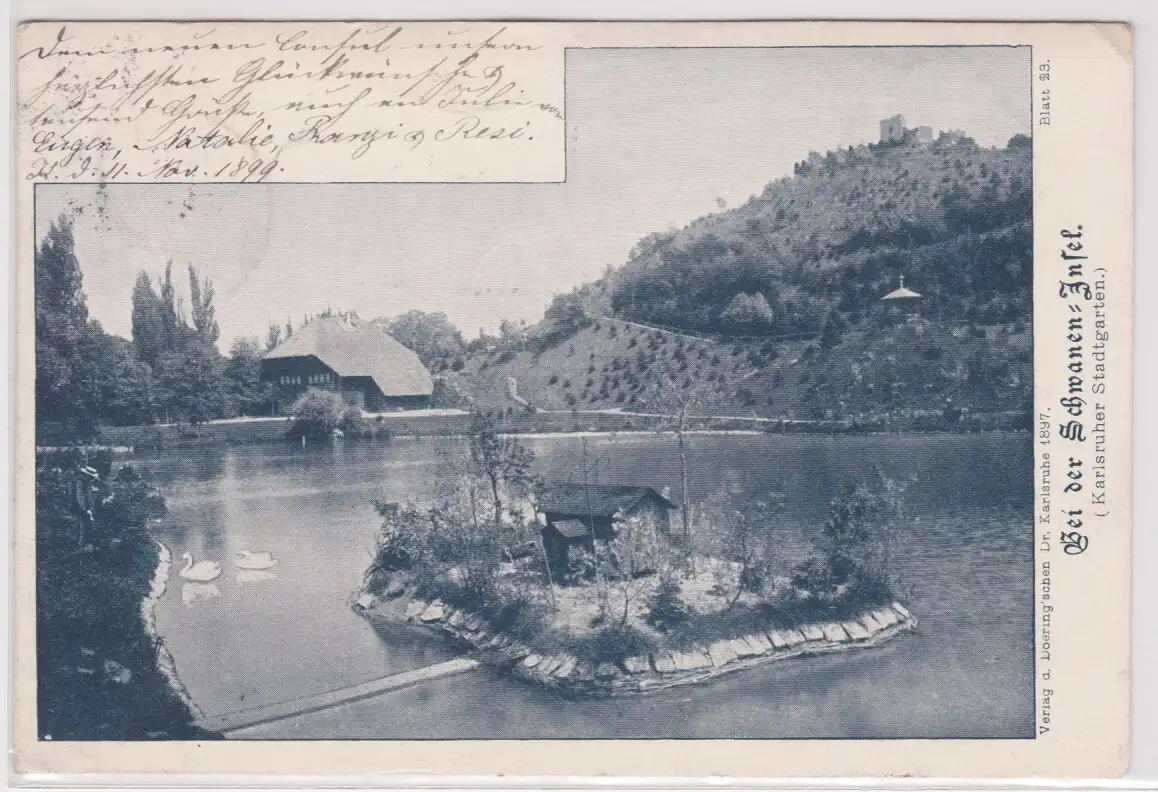 Dem neuen Consul unsern
herzlichsten Glückwünsche &
tausend Grüße, auch an Julie von
Eugen, Natalie, Franzi & Resi.
K. d. 11. Nov. 1899.
Blatt 23.
Bei der Schwanen-Insel.
(Karlsruher Stadtgarten.)
Verlag d. Doering'schen Dr. Karlsruhe 1897.